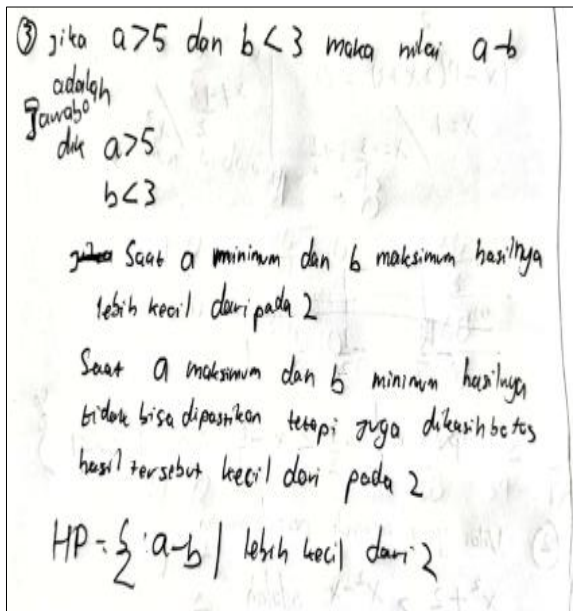 ③ jika a>5 dan b<3 maka nilai a-b
adalah
Jawab:
dik a>5
b<3
Saat a minimum dan b maksimum hasilnya
lebih kecil daripada 2
Saat a maksimum dan b minimum hasilnya
tidak bisa dipastikan tetapi juga dikasih batas
hasil tersebut kecil dari pada 2
HP = { a-b | lebih kecil dari 2